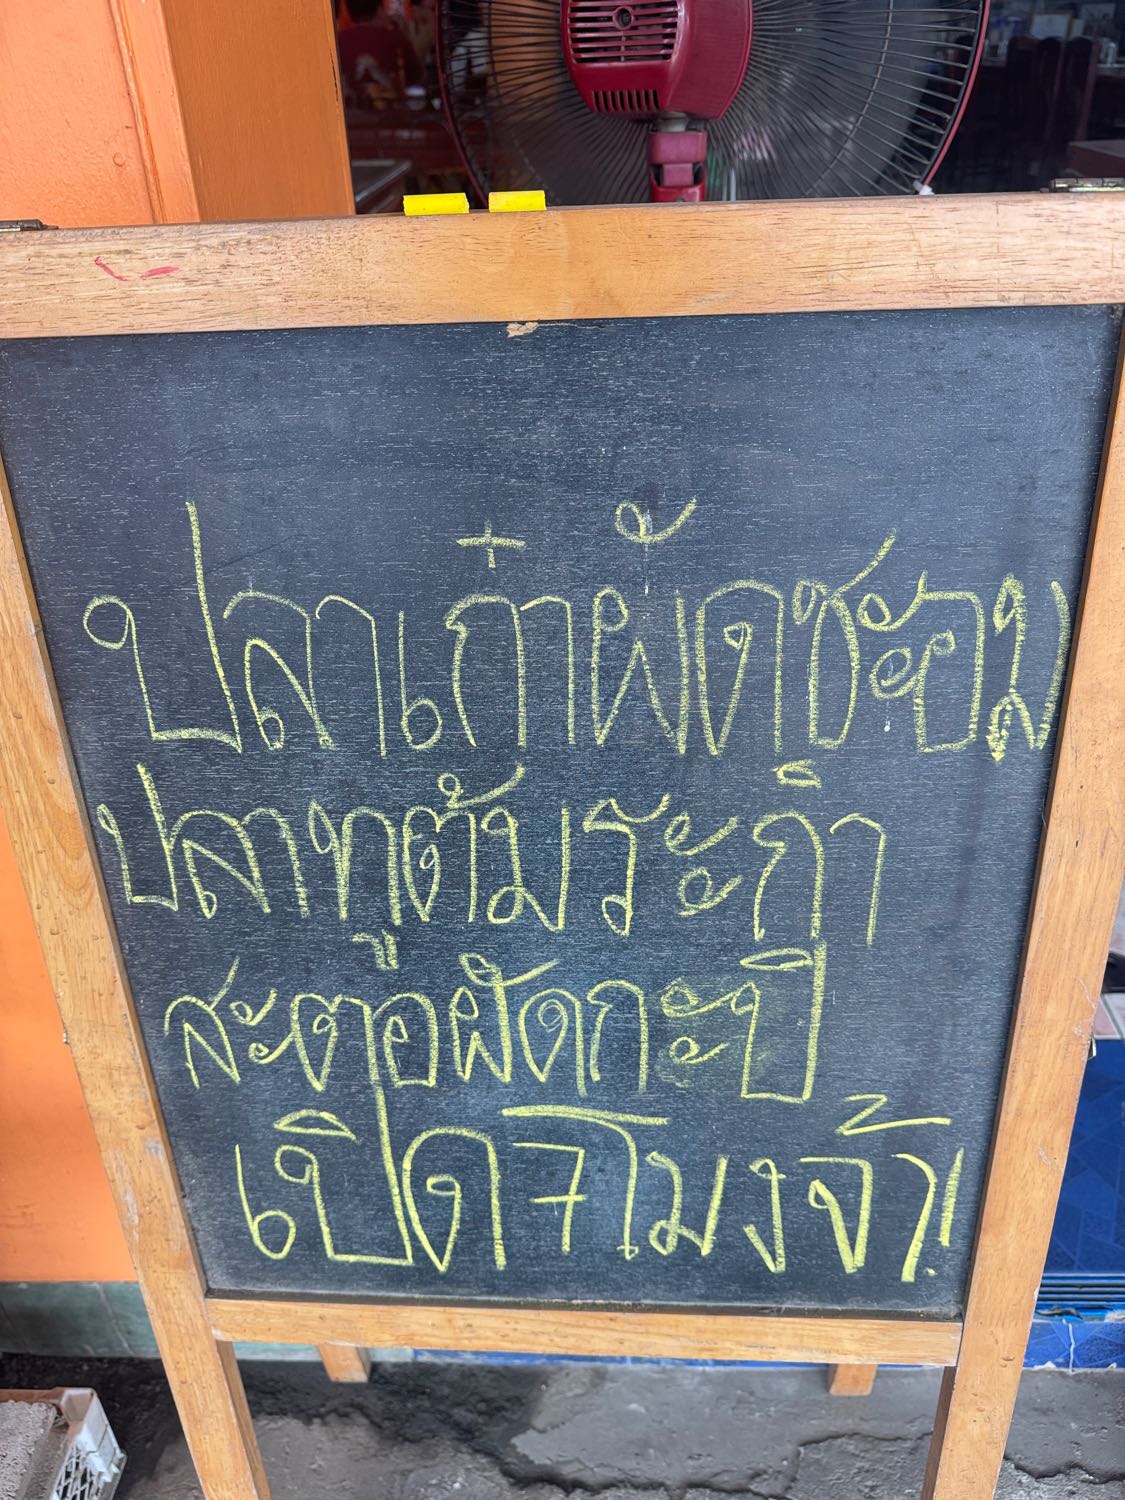 ปลาเก๋าผัดชะอม
ปลาทูต้มระกำ
สะตอผัดกะปิ
เปิด 7 โมงจ้า!